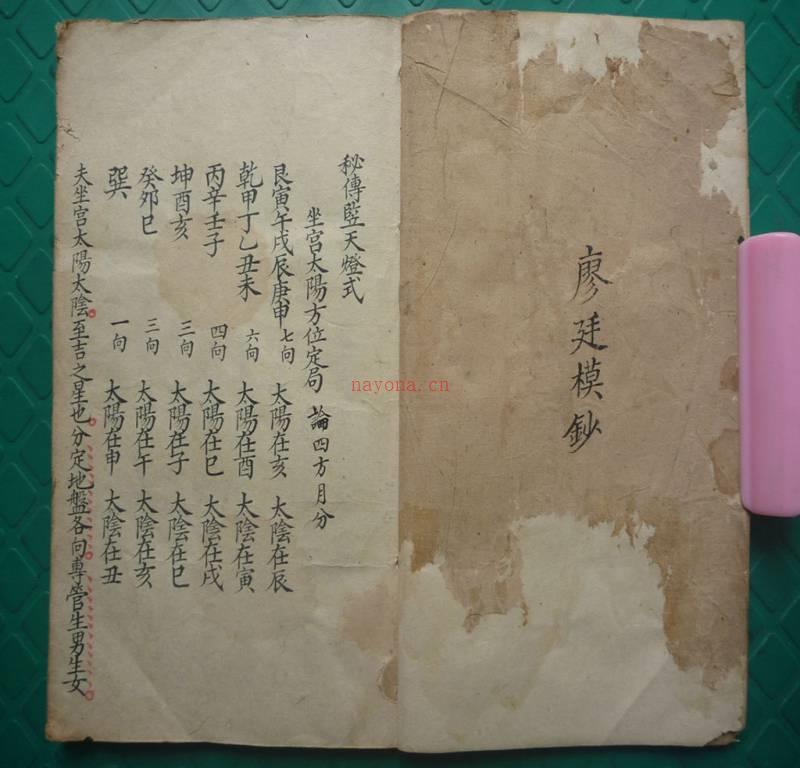 廖廷模鈔
秘傳竪天燈式
坐宫太陽方位定局 論四方月分
艮寅午戌辰庚申 七向 太陽在亥 太陰在辰
乾甲丁乙丑未 六向 太陽在酉 太陰在寅
丙辛壬子 四向 太陽在巳 太陰在戌
坤酉亥 三向 太陽在子 太陰在巳
癸夘巳 三向 太陽在午 太陰在亥
巽 一向 太陽在申 太陰在丑
夫坐宫太陽太陰至吉之星也分定地盤各向專管生男生女
nayona.cn